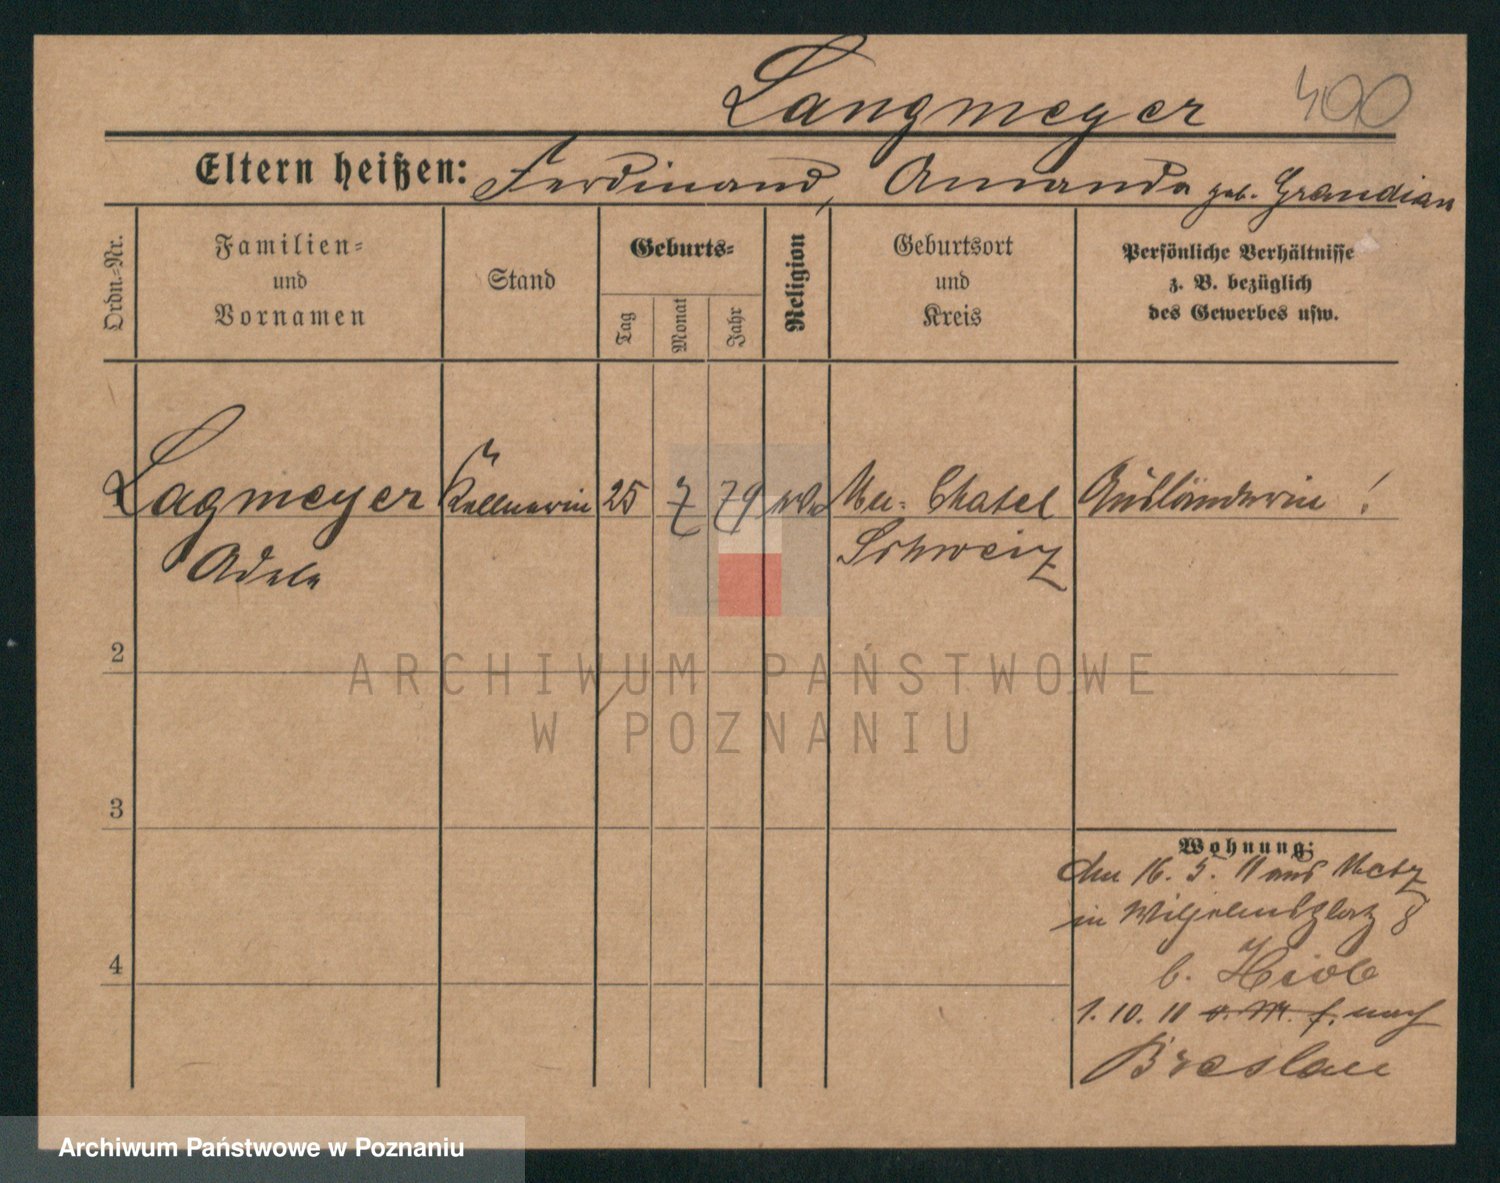 Langmeyer 400
Eltern heißen: Ferdinand, Amanda geb. Grandian
Ordn.-Nr.
Familien-
und
Vornamen
Stand
Geburts-
Tag
Monat
Jahr
Religion
Geburtsort
und
Kreis
Persönliche Verhältnisse
z. B. bezüglich
des Gewerbes usw.
Lagmeyer Kellnerin 25 7 79 Neu-Chatel Ausländerin!
Adele Schweiz
2
3
4
Wohnung:
den 16. 5. 11 aus Metz
in Wilhelmsplatz 8
b. Hiob
1. 10. 11 nach
Breslau
ARCHIWUM PAŃSTWOWE
W POZNANIU
Archiwum Państwowe w Poznaniu